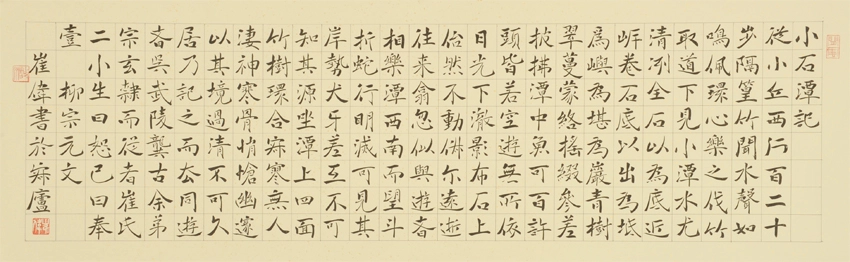 小石潭記
從小丘西行百二十
步隔篁竹聞水聲如
鳴佩環心樂之伐竹
取道下見小潭水尤
清冽全石以為底近
岸卷石底以出為坻
為嶼為堪為巖青樹
翠蔓蒙絡搖綴參差
披拂潭中魚可百許
頭皆若空遊無所依
日光下澈影布石上
佁然不動俶尔遠逝
往来翕忽似與遊者
相樂潭西南而望斗
折蛇行明滅可見其
岸勢犬牙差互不可
知其源坐潭上四面
竹樹環合寂寥無人
淒神寒骨悄愴幽邃
以其境過清不可久
居乃記之而去同遊
者吳武陵龔古余弟
宗玄隸而從者崔氏
二小生曰恕己曰奉
壹 柳宗元文
崔偉書於寂廬